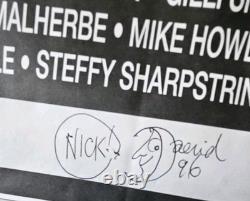 MALHERBE • MIKE HOWL
LE • STEFFY SHARPSTRIN
NICK! David
96
ebay.com